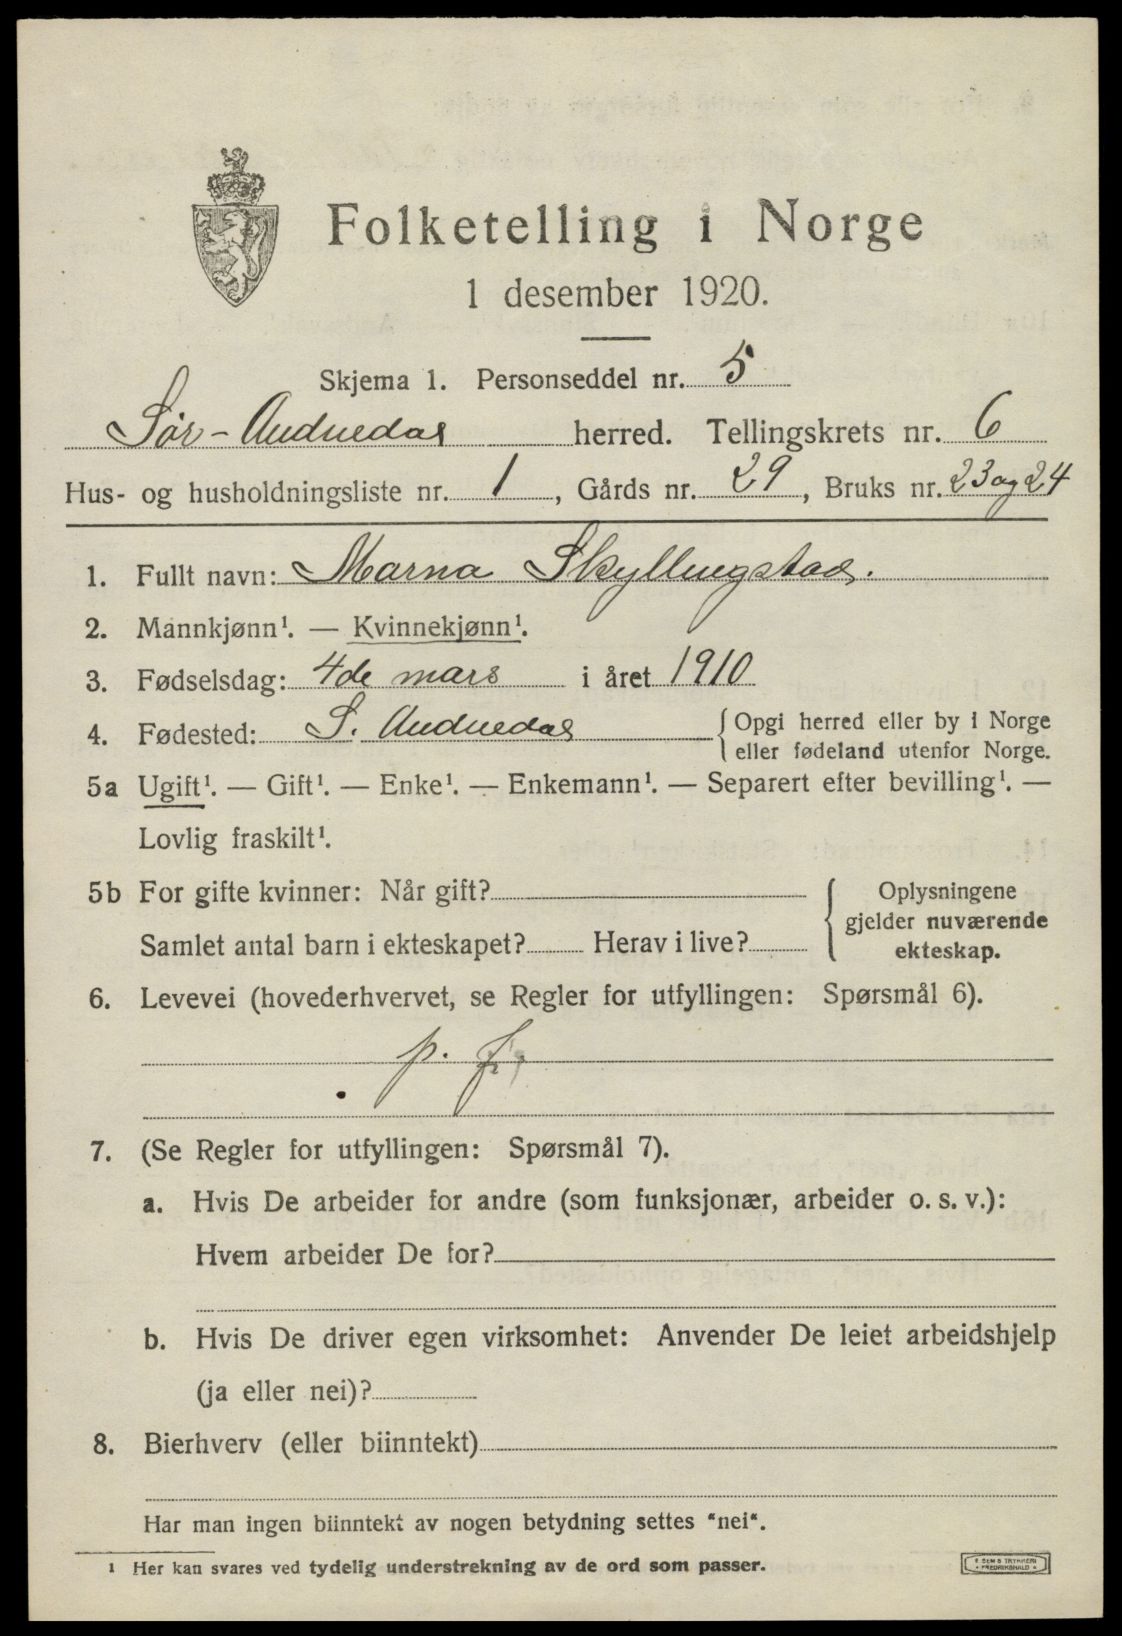 Folketelling i Norge
1 desember 1920.
Skjema 1. Personseddel nr. 5
Sør-Audnedal herred. Tellingskrets nr. 6
Hus- og husholdningsliste nr. 1, Gårds nr. 29, Bruks nr. 23 og 24
1. Fullt navn: Marna Skyllingstad.
2. Mannkjønn¹. — Kvinnekjønn¹.
3. Fødselsdag: 4de mars i året 1910
4. Fødested: S. Audnedal { Opgi herred eller by i Norge
eller fødeland utenfor Norge.
5a Ugift¹. — Gift¹. — Enke¹. — Enkemann¹. — Separert efter bevilling¹. —
Lovlig fraskilt¹.
5b For gifte kvinner: Når gift?
Samlet antal barn i ekteskapet? Herav i live?
{ Oplysningene
gjelder nuværende
ekteskap.
6. Levevei (hovederhvervet, se Regler for utfyllingen: Spørsmål 6).
p. f.
7. (Se Regler for utfyllingen: Spørsmål 7).
a. Hvis De arbeider for andre (som funksjonær, arbeider o. s. v.):
Hvem arbeider De for?
b. Hvis De driver egen virksomhet: Anvender De leiet arbeidshjelp
(ja eller nei)?
8. Bierhverv (eller biinntekt)
Har man ingen biinntekt av nogen betydning settes "nei".
¹ Her kan svares ved tydelig understrekning av de ord som passer.
SEMS TRYKKERI
FREDRIKSHALD